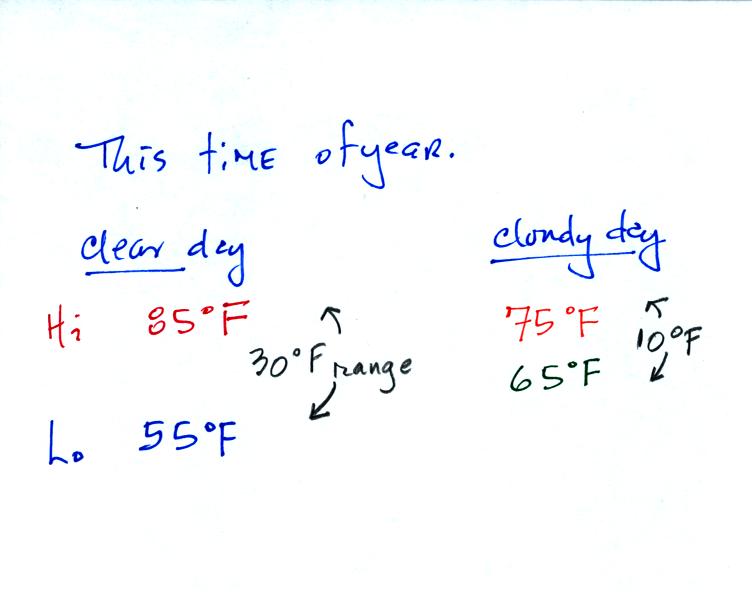 This time of year.
clear day cloudy day
Hi 85°F 75°F
30°F range 10°F
65°F
Lo 55°F